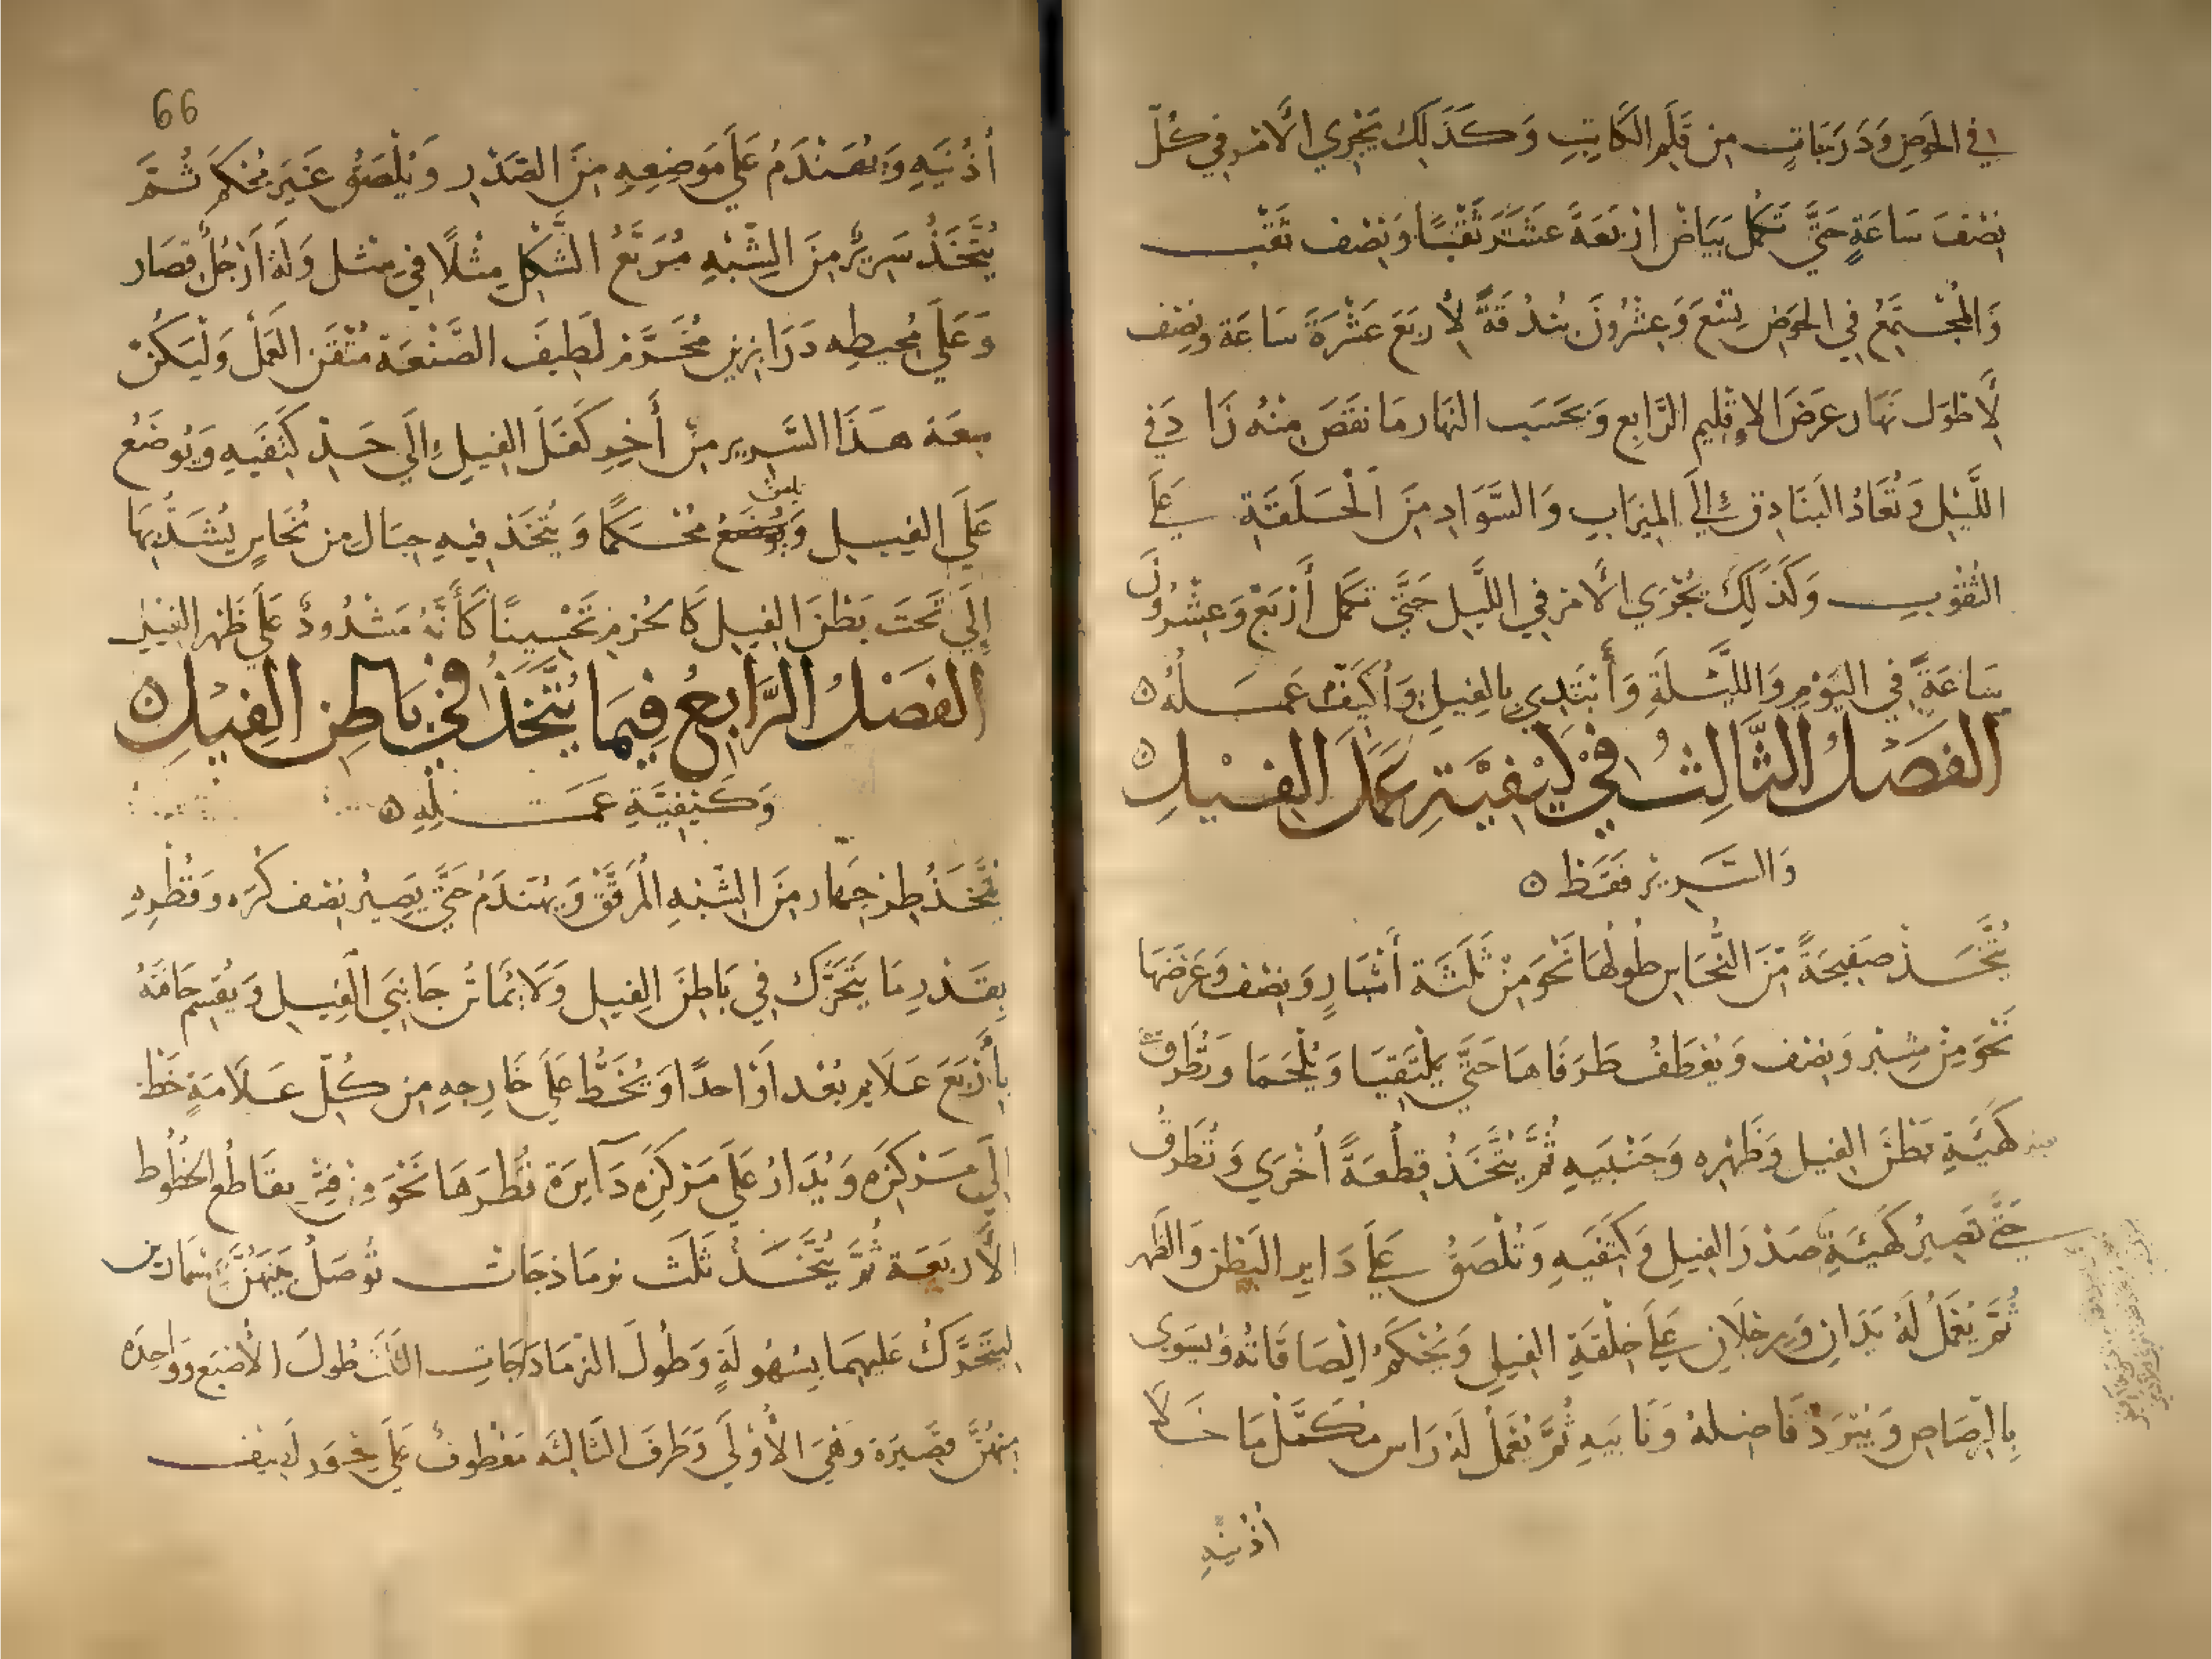 في الحوض ودرجات من قلم الكاتب وكذلك يجري الامر في كل
نصف ساعة حتى تكمل بياض اربعة عشر ثقبا ونصف ثقب
والمجتمع في الحوض تسع وعشرون بندقة لاربع عشرة ساعة ونصف
لاطول نهار عرض الاقليم الرابع وبحسب النهار ما نقص منه زاد في
الليل وتعاد البنادق إلى الميزاب والسواد من الحلقة على
الثقوب وكذلك يجري الامر في الليل حتى تكمل أربع وعشرون
ساعة في اليوم والليلة وأبتدي بالفيل وأكيف عمله ه
الفصل الثالث في كيفية عمل الفيل ه
والسرير فقط ه
يتخذ صفيحة من النحاس طولها نحو من ثلثة أشبار ونصف وعرضها
نحو من شبر ونصف ويعطف طرفاها حتى يلتقيا ويلحما وتطرق
كهيئة بطن الفيل وظهره وجنبيه ثم يتخذ قطعة أخرى وتطرق
حتى تصير كهيئة صدر الفيل وكتفيه وتلصق على داير البطن والظهر
ثم يعمل له يدان ورجلان على خلقة الفيل ويحكم الصاقاته ويسوى
بالرصاص ويبرد فاضله ونابيه ثم يعمل له راس مكمل ما خلا
أذنيه
66
أذنيه ويهندم على موضعه من الصدر ويلصق غير محكم ثم
يتخذ سرير من الشبه مربع الشكل مثلا في مثل وله أرجل قصار
وعلى محيطه درابزين مخرم لطيف الصنعة متقن العمل وليكن
سعة هذا السرير من أخر كفل الفيل إلى حد كتفيه ويوضع
على الفيل ويلصق محكما ويتخذ فيه حبال من نحاس يشد بها
إلى تحت بطن الفيل كالحزم تحسينا كأنه مشدود على ظهر الفيل
الفصل الرابع فيما يتخذ في باطن الفيل ه
وكيفية عمله ه
يتخذ طرجهار من الشبه المرقق ويهندم حتى يصير نصف كره وقطره
بقدر ما يتحرك في باطن الفيل ولا يماس جانبي الفيل ويقسم حافته
بأربع علايم بعدا واحدا ويخط على خارجه من كل علامة خط
إلى مركزه ويدار على مركزه دآيرة قطرها نحو ورقة بقاطع الخطوط
الاربعة ثم يتخذ ثلث نرماذجات توصل بينهن بمسمارين
ليتحرك عليهما بسهولة وطول النرماذجات الثلث طول الأصبع وواحدة
منهن قصيرة وهي الأولى وطرف الثالثة معطوف على محور لطيف